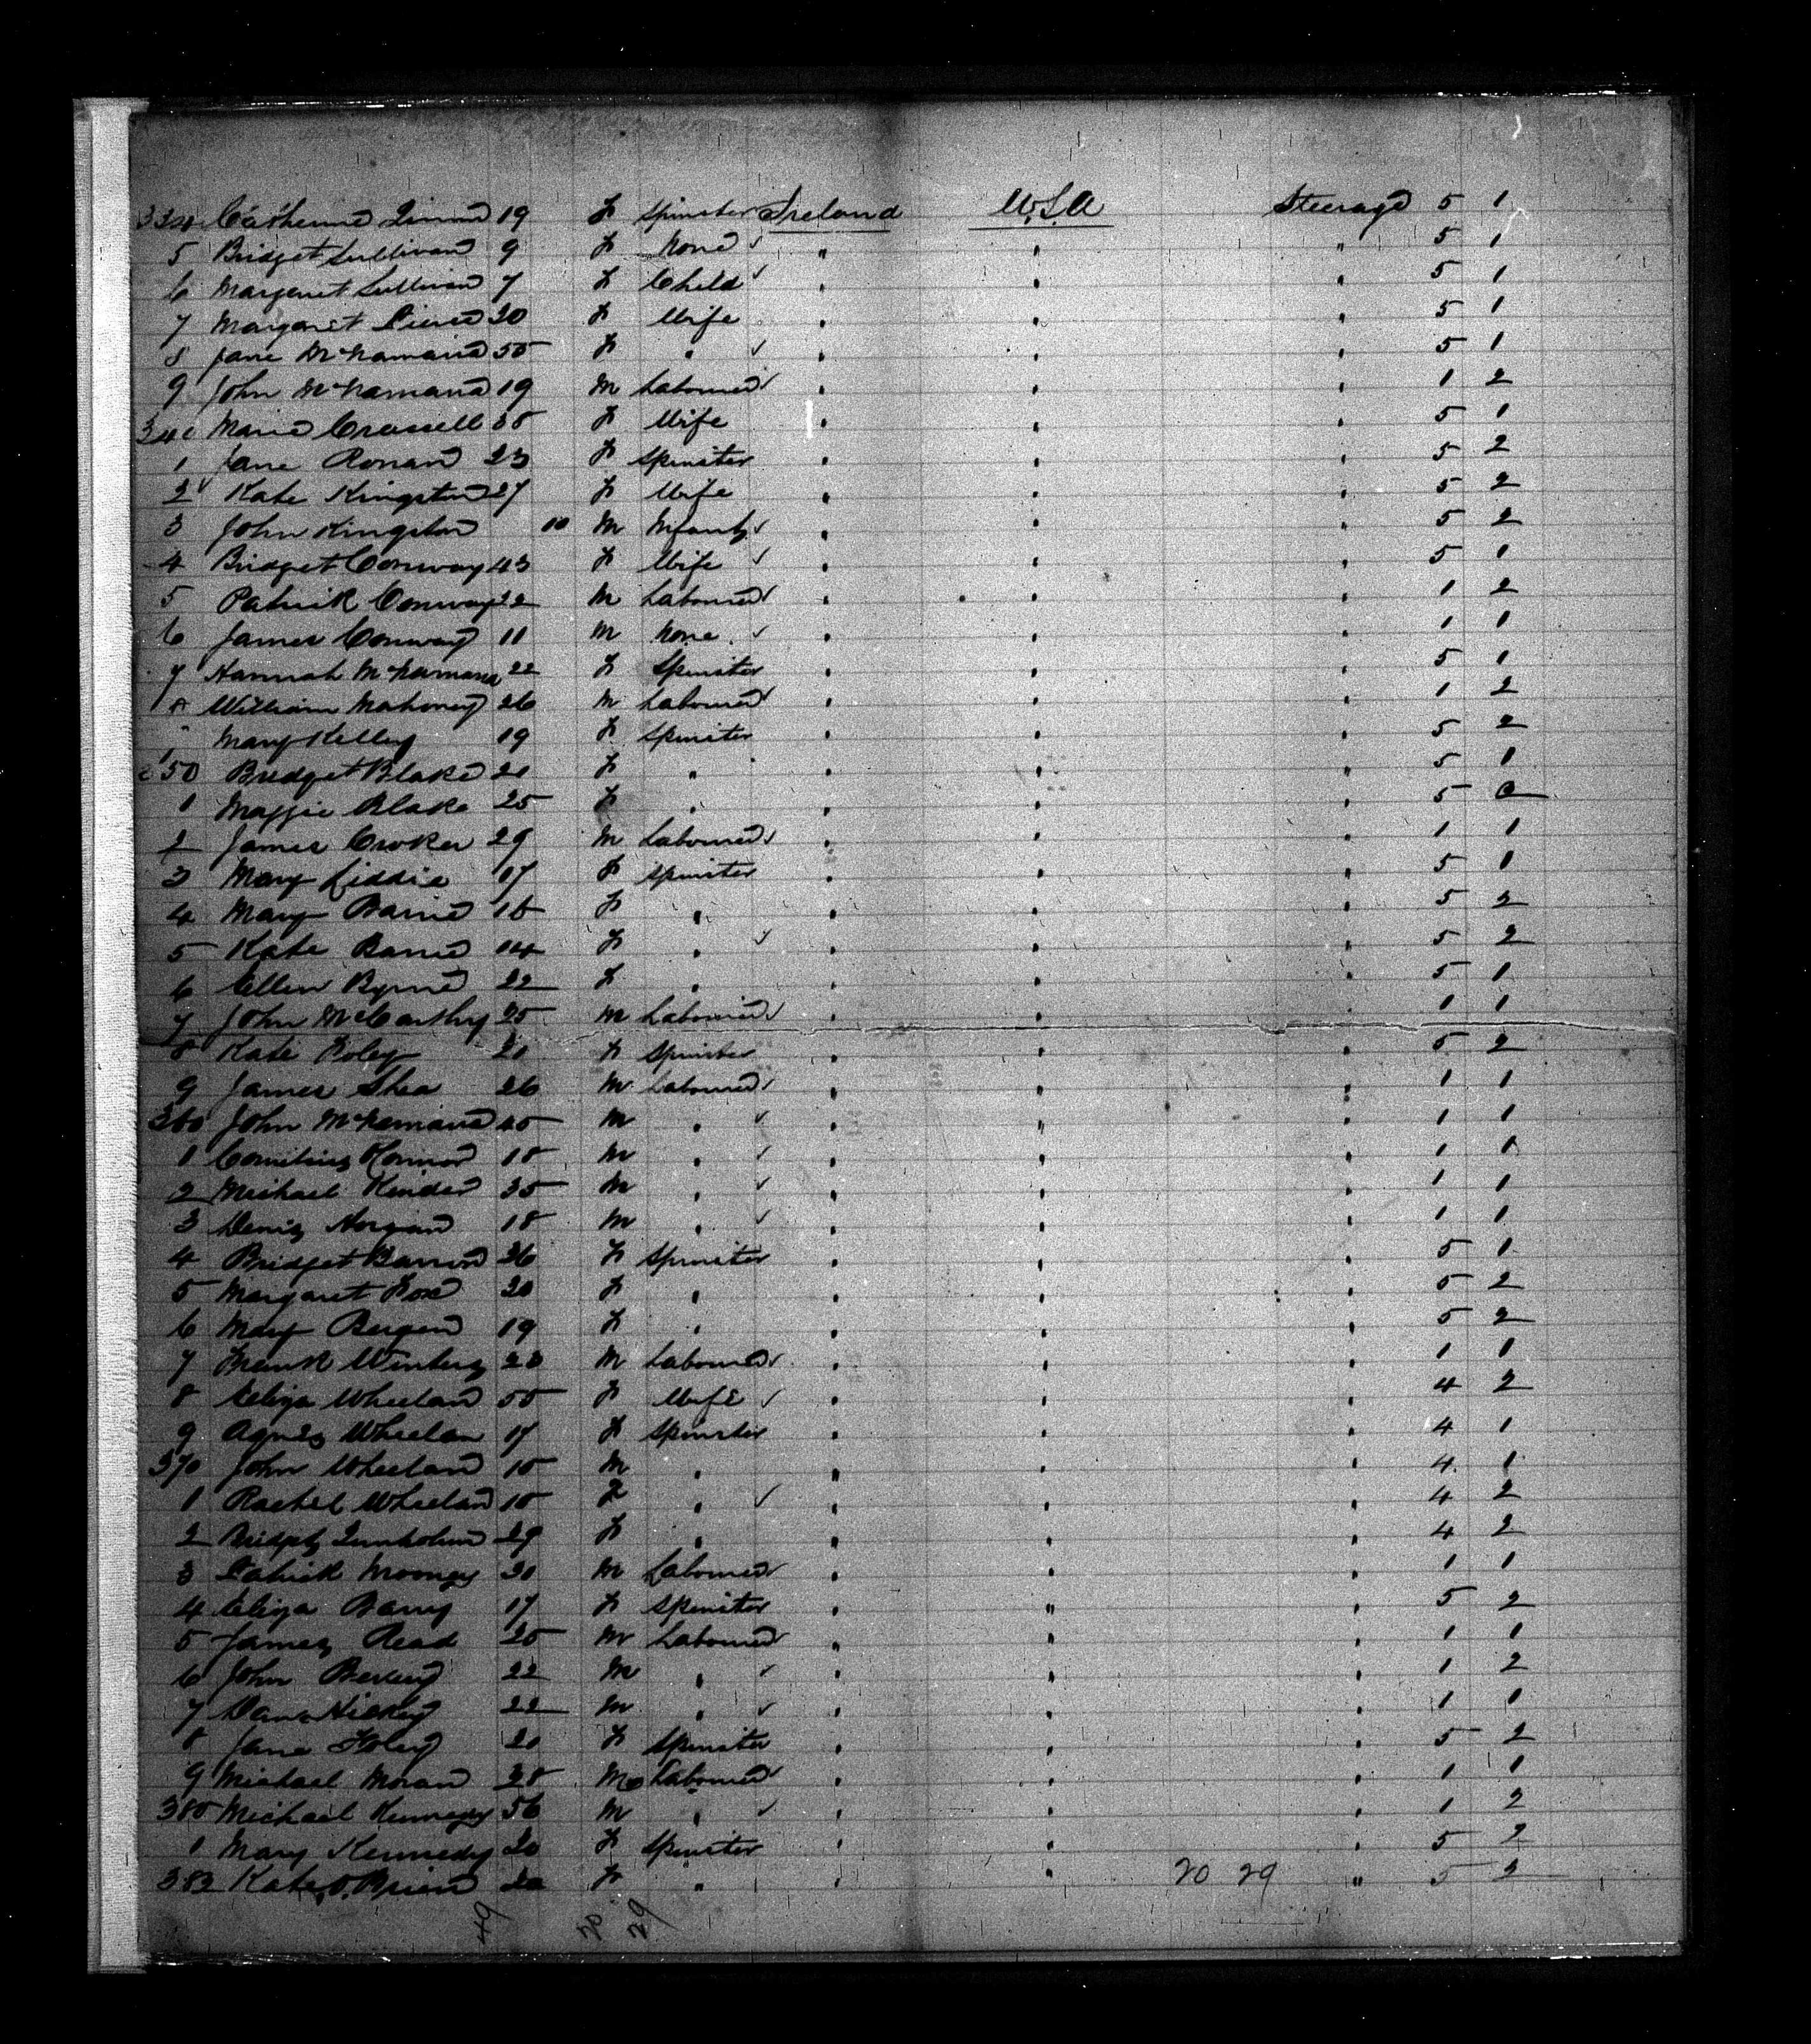 334 Catherine 19 F Spinster Ireland U.S.A Steerage 5 1
5 Bridget Sullivan 9 F None " " " 5 1
6 Margaret Sullivan 7 F Child " " " 5 1
7 Margaret 30 F Wife " " " 5 1
8 Jane McNamara 55 F " " " " 5 1
9 John McNamara 19 M Labourer " " " 1 2
340 Maria 38 F Wife " " " 5 1
1 Jane Ronan 23 F Spinster " " " 5 2
2 Kate Kingston 27 F Wife " " " 5 2
3 John Kingston 10 M Infant " " " 5 2
4 Bridget Conway 43 F Wife " " " 5 1
5 Patrick Conway 22 M Labourer " " " 1 2
6 James Conway 11 M None " " " 1 1
7 Hannah McNamara 22 F Spinster " " " 5 1
8 William Mahoney 26 M Labourer " " " 1 2
" Mary Kelley 19 F Spinster " " " 5 2
350 Bridget Blake 21 F " " " " 5 1
1 Maggie Blake 25 F " " " " 5 2
2 James Croker 29 M Labourer " " " 1 1
3 Mary Liddie 17 F Spinster " " " 5 1
4 Mary Barrie F " " " " 5 2
5 Kate Barrie 14 F " " " " 5 2
6 Ellen Byrne 22 F " " " " 5 1
7 John McCarthy 25 M Labourer " " " 1 1
8 Kate Foley 21 F Spinster " " " 5 2
9 James Shea 26 M Labourer " " " 1 1
360 John McNamara M " " " " 1 1
1 Cornelius Konnor 18 M " " " " 1 1
2 Michael Kinder 35 M " " " " 1 1
3 Denis Horgan 18 M " " " " 1 1
4 Bridget Barron 26 F Spinster " " " 5 1
5 Margaret Fox 20 F " " " " 5 2
6 Mary Bergen 19 F " " " " 5 2
7 Frank M Labourer " " " 1 1
8 Eliza Wheelan 55 F Wife " " " 4 2
9 Agnes Wheelan 17 F Spinster " " " 4 1
370 John Wheelan 15 M " " " " 4 1
1 Rachel Wheelan 15 F " " " " 4 2
2 Bridget 29 F " " " " 4 2
3 Patrick Mooney M Labourer " " " 1 1
4 Eliza Barry 17 F Spinster " " " 5 2
5 James Read 25 M Labourer " " " 1 1
6 John 22 M " " " " 1 2
7 Dan Hickey 22 M " " " " 1 1
8 Jane Foley 20 F Spinster " " " 5 2
9 Michael Moran 28 M Labourer " " " 1 1
380 Michael Kennedy 56 M " " " " 1 2
1 Mary Kennedy 20 F Spinster " " " 5 2
382 Kate O'Brien 20 F " " " 20 29 " 5 2
49 20 29